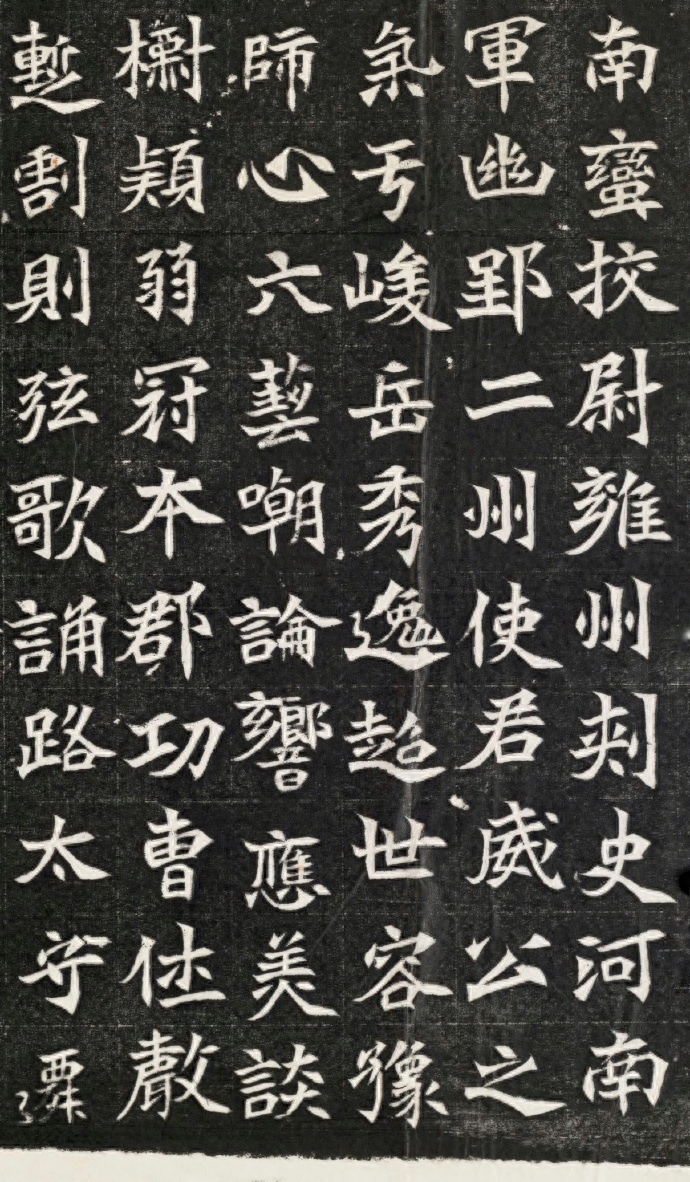 南蠻挍尉雍州刾史河南
軍幽郢二州使君威公之
氣于峻岳秀逸超世容豫
師心六藝嘲論響應美談
穎弱冠本郡功曹
暫割則弦歌誦路太守遷